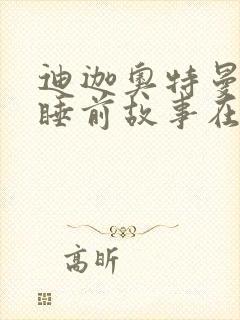 迪迦奥特曼
睡前故事在
高昕